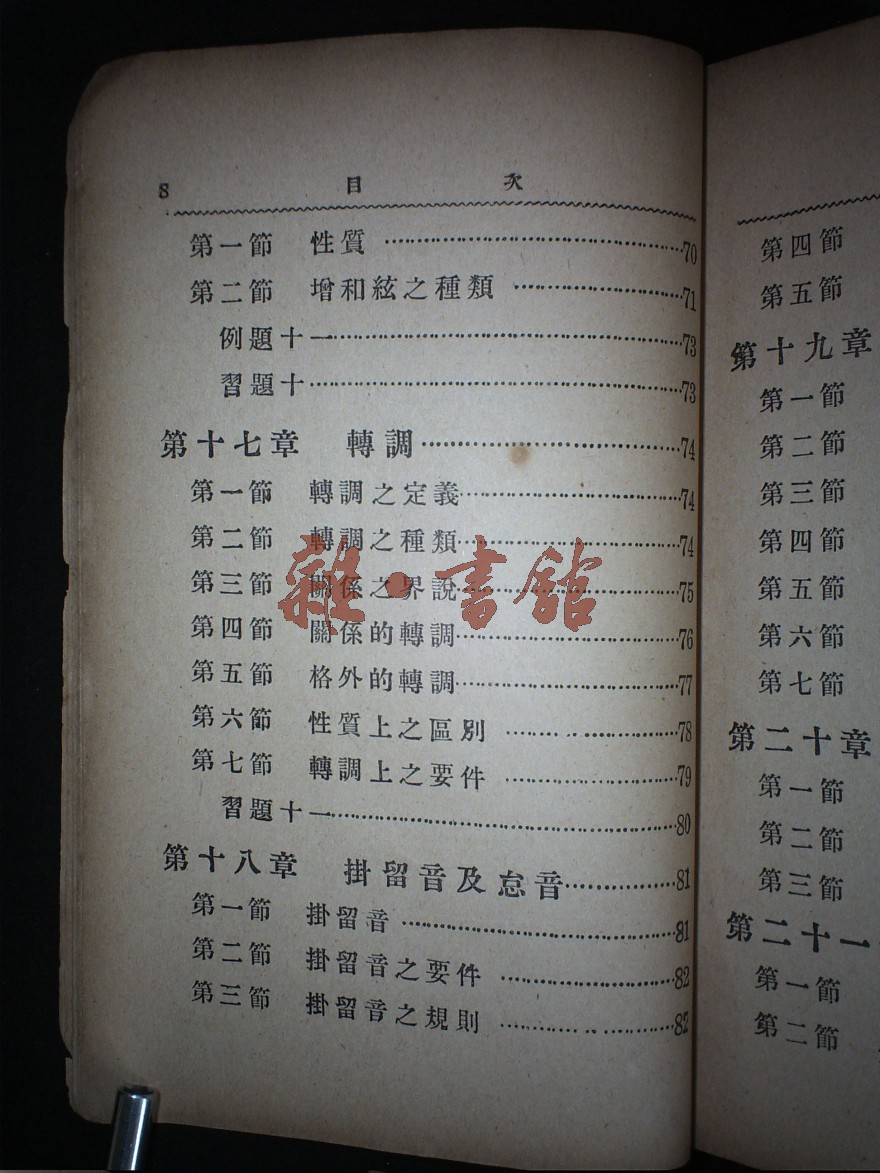 8 目次
第一節 性質 ……………………………70
第二節 增和絃之種類 ……………………71
例題十一……………………………………73
習題十………………………………………73
第十七章 轉調………………………………74
第一節 轉調之定義…………………………74
第二節 轉調之種類…………………………74
第三節 關係之界說…………………………75
第四節 關係的轉調…………………………76
第五節 格外的轉調…………………………77
第六節 性質上之區別 ……………………78
第七節 轉調上之要件 ……………………79
習題十一……………………………………80
第十八章 掛留音及怠音……………………81
第一節 掛留音 ……………………………81
第二節 掛留音之要件 ……………………82
第三節 掛留音之規則 ……………………82
雜·書館
第四節
第五節
第十九章
第一節
第二節
第三節
第四節
第五節
第六節
第七節
第二十章
第一節
第二節
第三節
第二十一
第一節
第二節